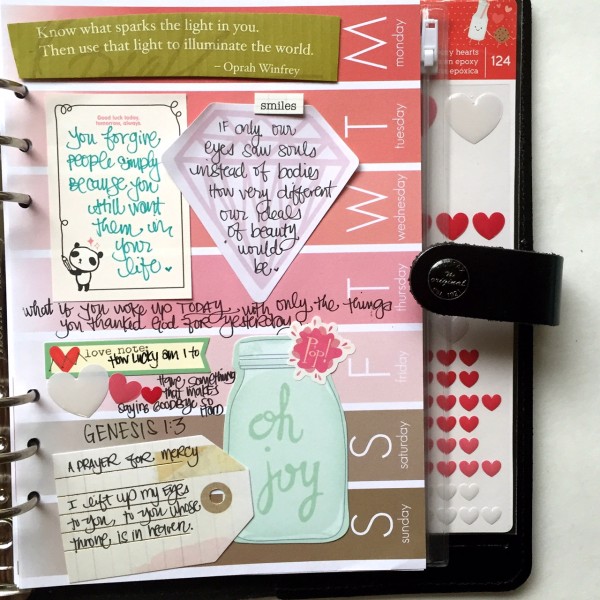 Know what sparks the light in you.
Then use that light to illuminate the world.
– Oprah Winfrey
M
monday
124
hearts
epoxy
epóxica
smiles
Good luck today
tomorrow, always.
You forgive
people simply
Because you
still want
them in
your
life.
IF only our
eyes saw souls
instead of bodies
How very different
our ideals
of beauty
would
be.
T
tuesday
W
wednesday
T
thursday
original
what if you woke up TODAY with only the things
you thanked God for yesterday
F
friday
love note:
How lucky am I to
Have something
that makes
saying goodbye so
Hard
Pop!
oh
joy
GENESIS 1:3
S
saturday
A PRAYER for mercy
I lift up my eyes
to you, to you whose
throne is in heaven.
S
sunday